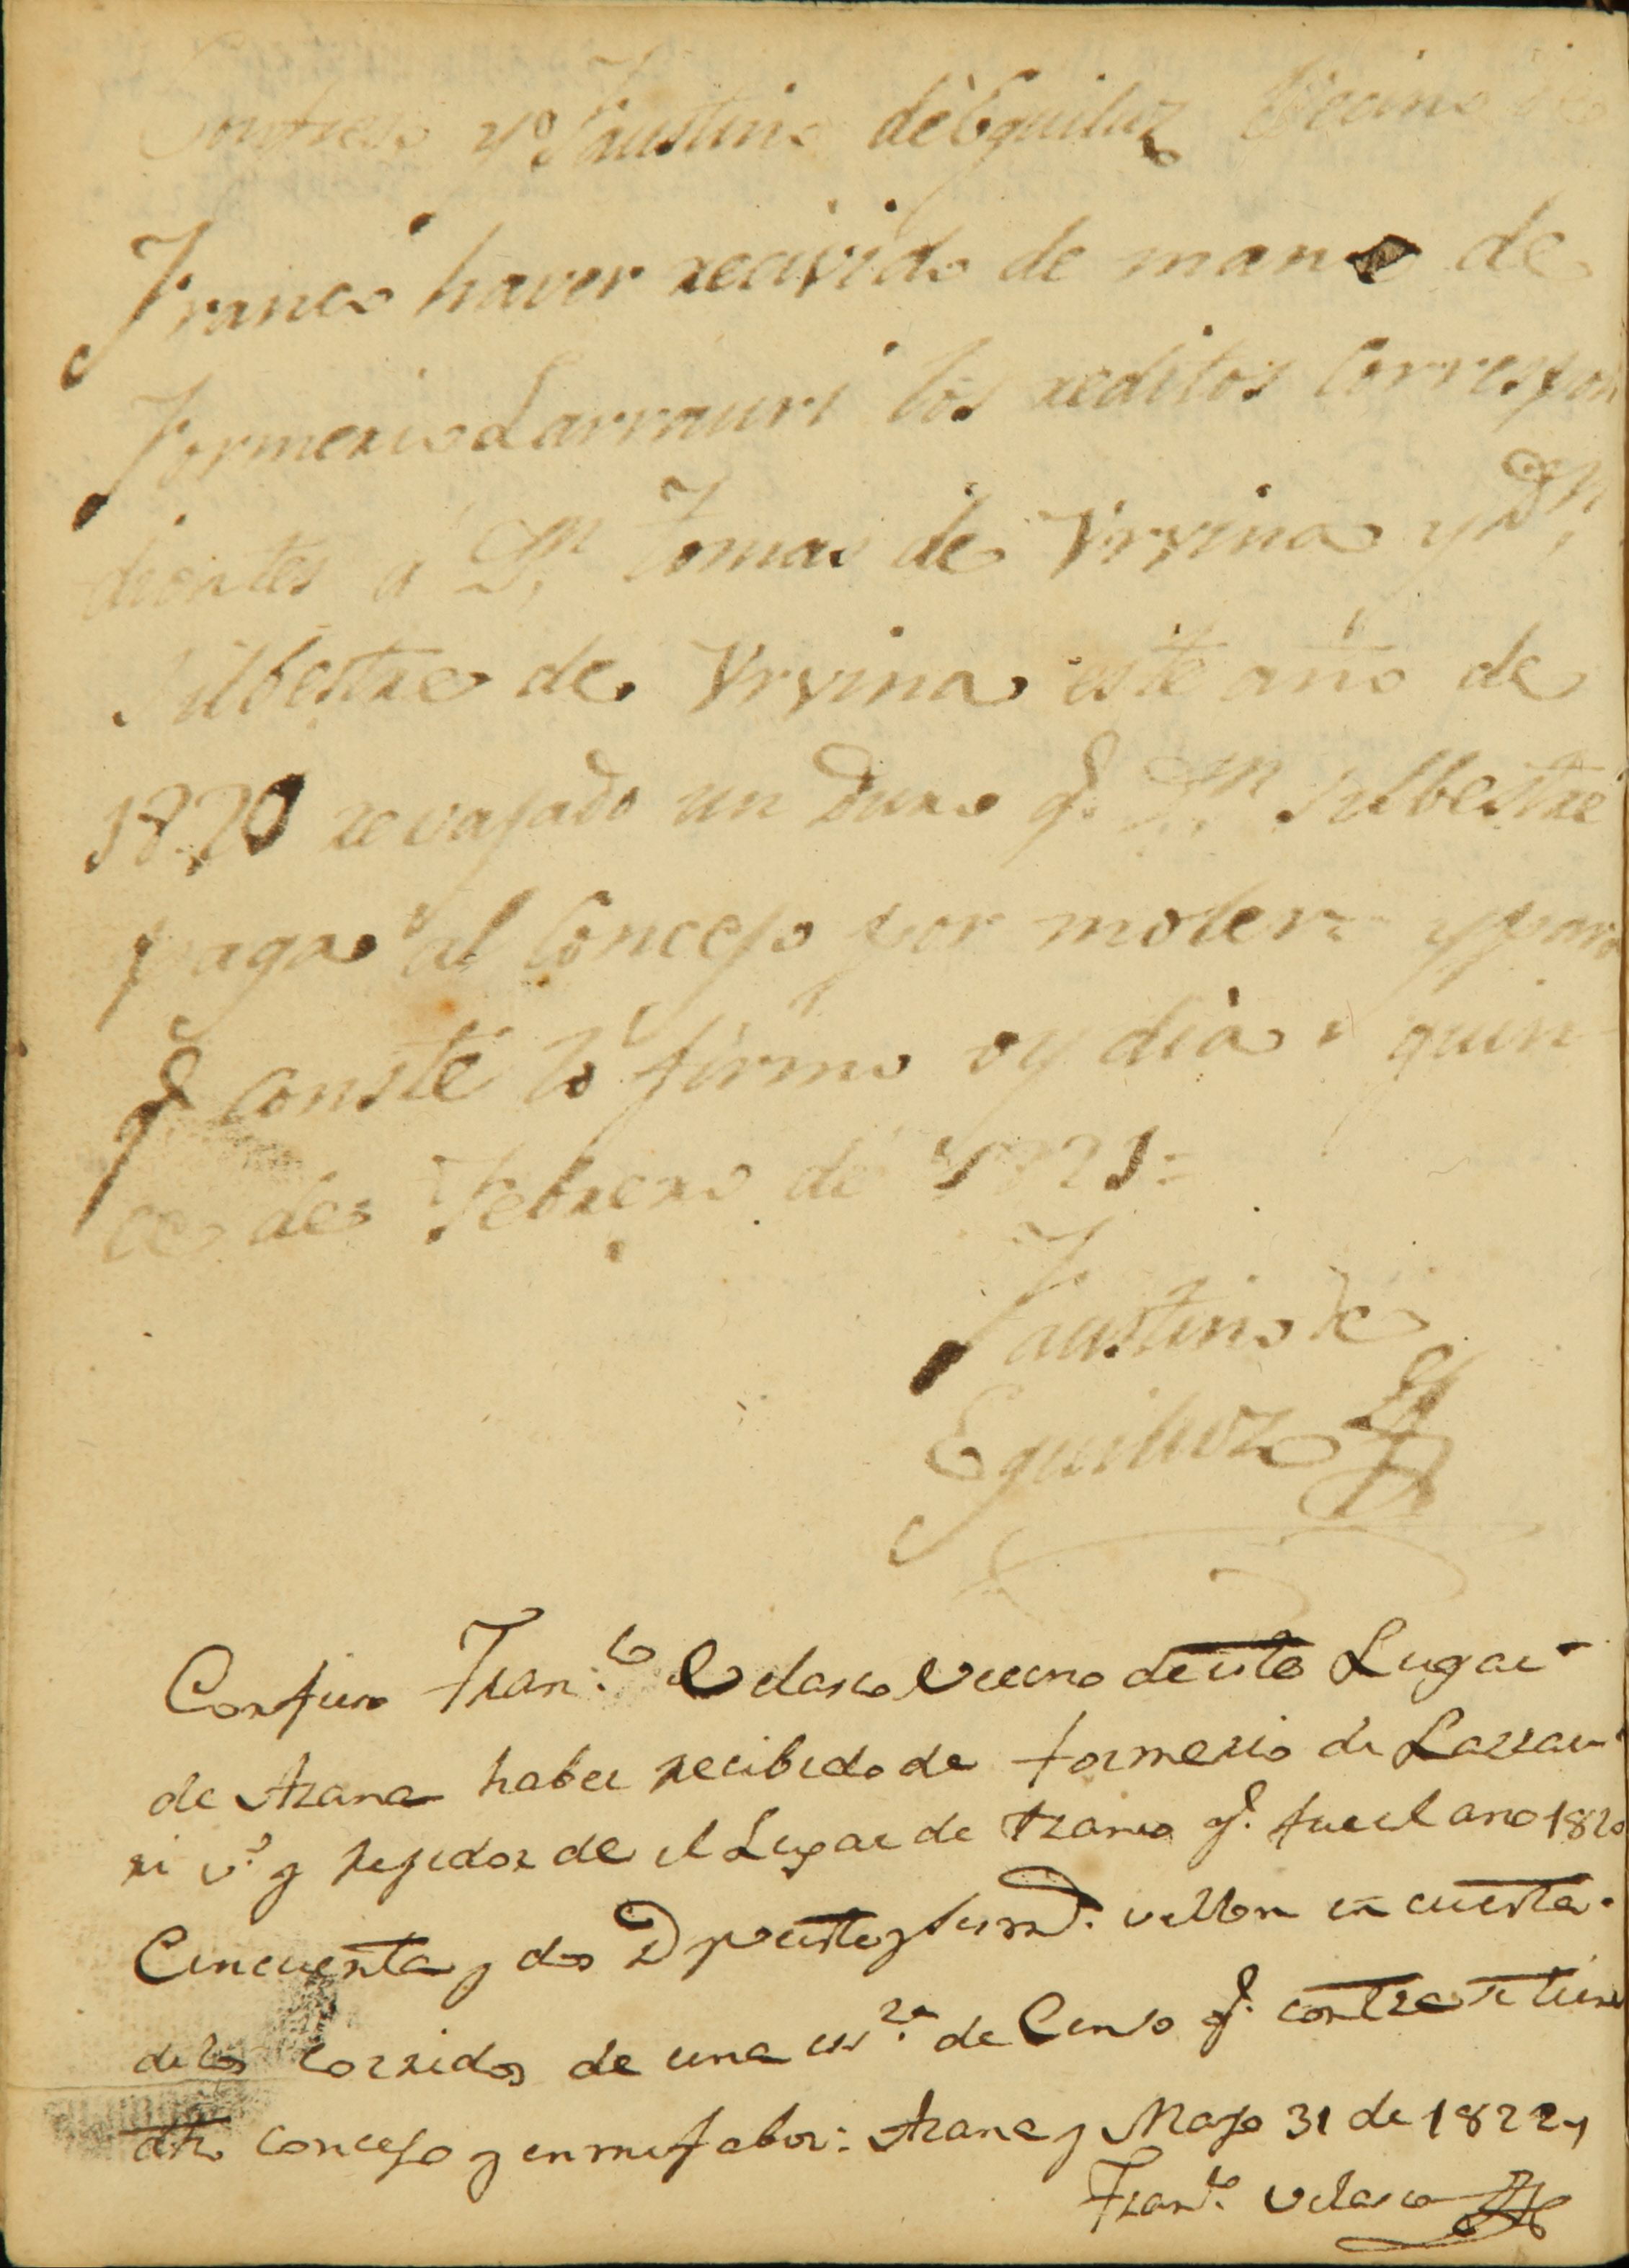 Confieso yo Faustino de Eguiluz Vecino de
Franco haver recivido de mano de
Formerio Larrauri los reditos correspon
dientes a Dn. Tomas de Vrvina y Dn.
Silbestre de Vrvina este año de
1820 revajado un Duro q.e Dn. Silbestre
paga al Concejo por moler y para
q.e conste lo firmo oy dia quin
ce de Febrero de 1821=
Faustino de
Eguiluz
Confieso Fran.co Velasco Vecino de este Lugar
de Arana haber recibido de formerio de Larrau
ri v.o y rejidor de el Lugar de Arana q.e fue el año 1820
Cincuenta y dos R y veinte y seis mrd. vellon en cuenta
de los corridos de una es.ra de Censo q.e contra si tiene
dho concejo y en mi fabor: Arana y Mayo 31 de 1822
Fran.co Velasco